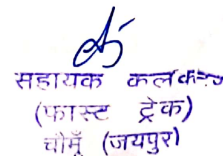 सहायक कलक्टर
(फास्ट ट्रेक)
चौमूँ (जयपुर)